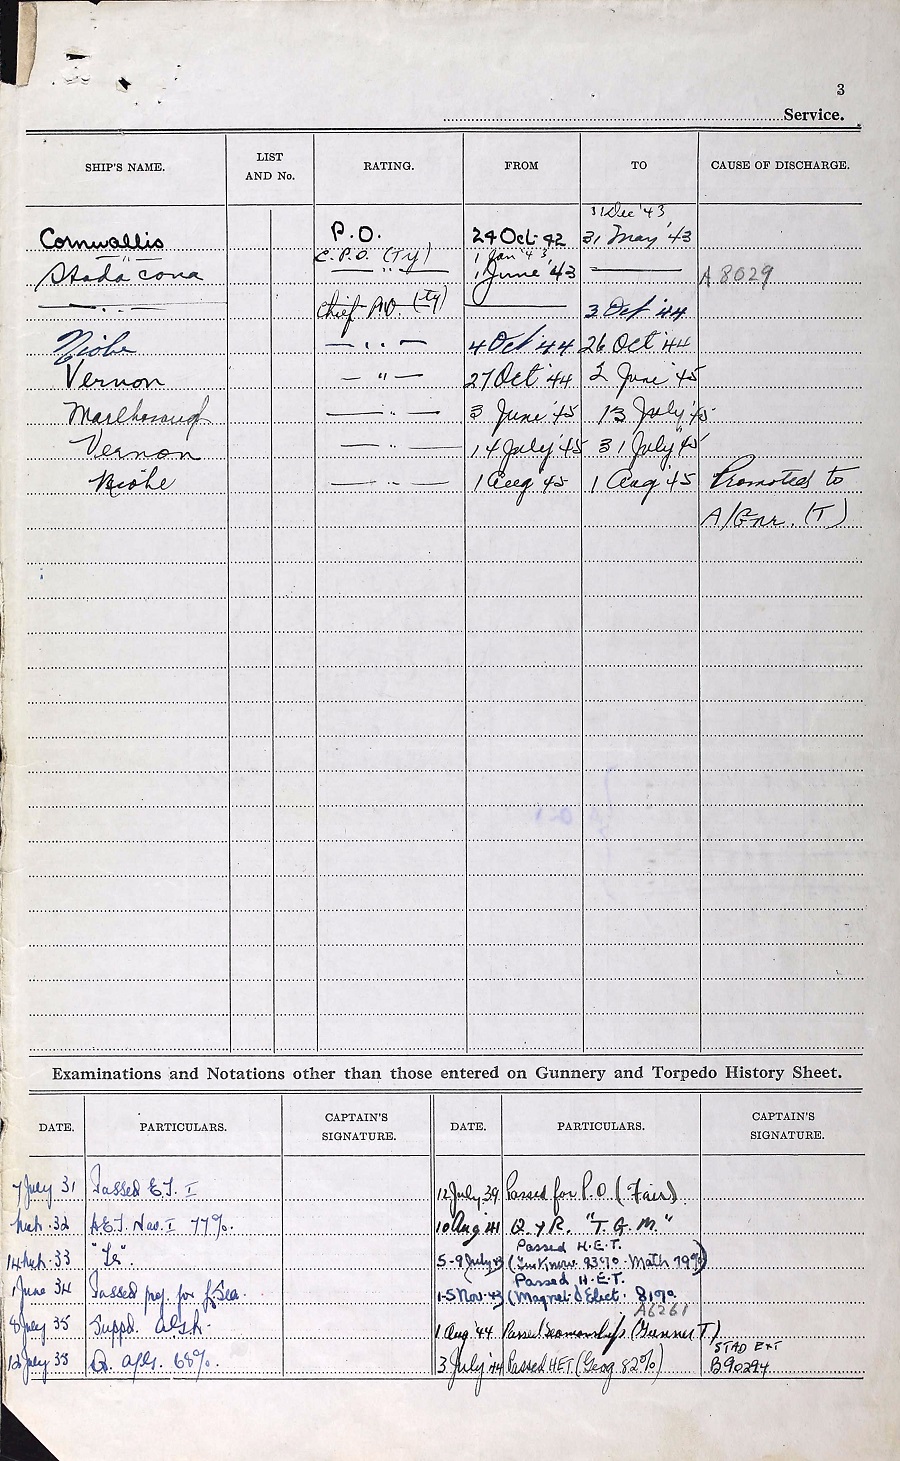 3
Service.
SHIP'S NAME. LIST AND No. RATING. FROM TO CAUSE OF DISCHARGE.
31 Dec '43
Cornwallis P.O. 24 Oct 42 31 May '43
— " — C.P.O. (Ty) 1 Jan '43
Stadacona — " — 1 June '43 — A 8029
— " — Chief P.O. (ty) — 3 Oct '44
Niobe — " — 4 Oct '44 26 Oct '44
Vernon — " — 27 Oct '44 2 June '45
Marlborough — " — 3 June '45 13 July '45
Vernon — " — 14 July '45 31 July '45
Niobe — " — 1 Aug '45 1 Aug '45 Promoted to
A/Gnr. (T)
Examinations and Notations other than those entered on Gunnery and Torpedo History Sheet.
DATE. PARTICULARS. CAPTAIN'S SIGNATURE. DATE. PARTICULARS. CAPTAIN'S SIGNATURE.
7 July 31 Passed E.T. I 12 July 39 Passed for P.O. (Fair)
32 Nav. I 77%. 10 Aug 41 Q. "T.G.M."
Passed H.E.T.
33 5-9 July 43 ( 93% Math 79%)
Passed H.E.T.
1 June 34 Passed for 1-5 Nov. 43 (Magnet. & Elect. 81%
A6261
8 July 35 Suppd. 1 Aug '44 Passed Seamanship (Gunner T)
STAD EXT
Q. 68%. 3 July '44 Passed HET (Geog 82%) B90294